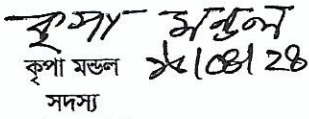 কৃপা মন্ডল
কৃপা মন্ডল ১৫/০৪/২৪
সদস্য